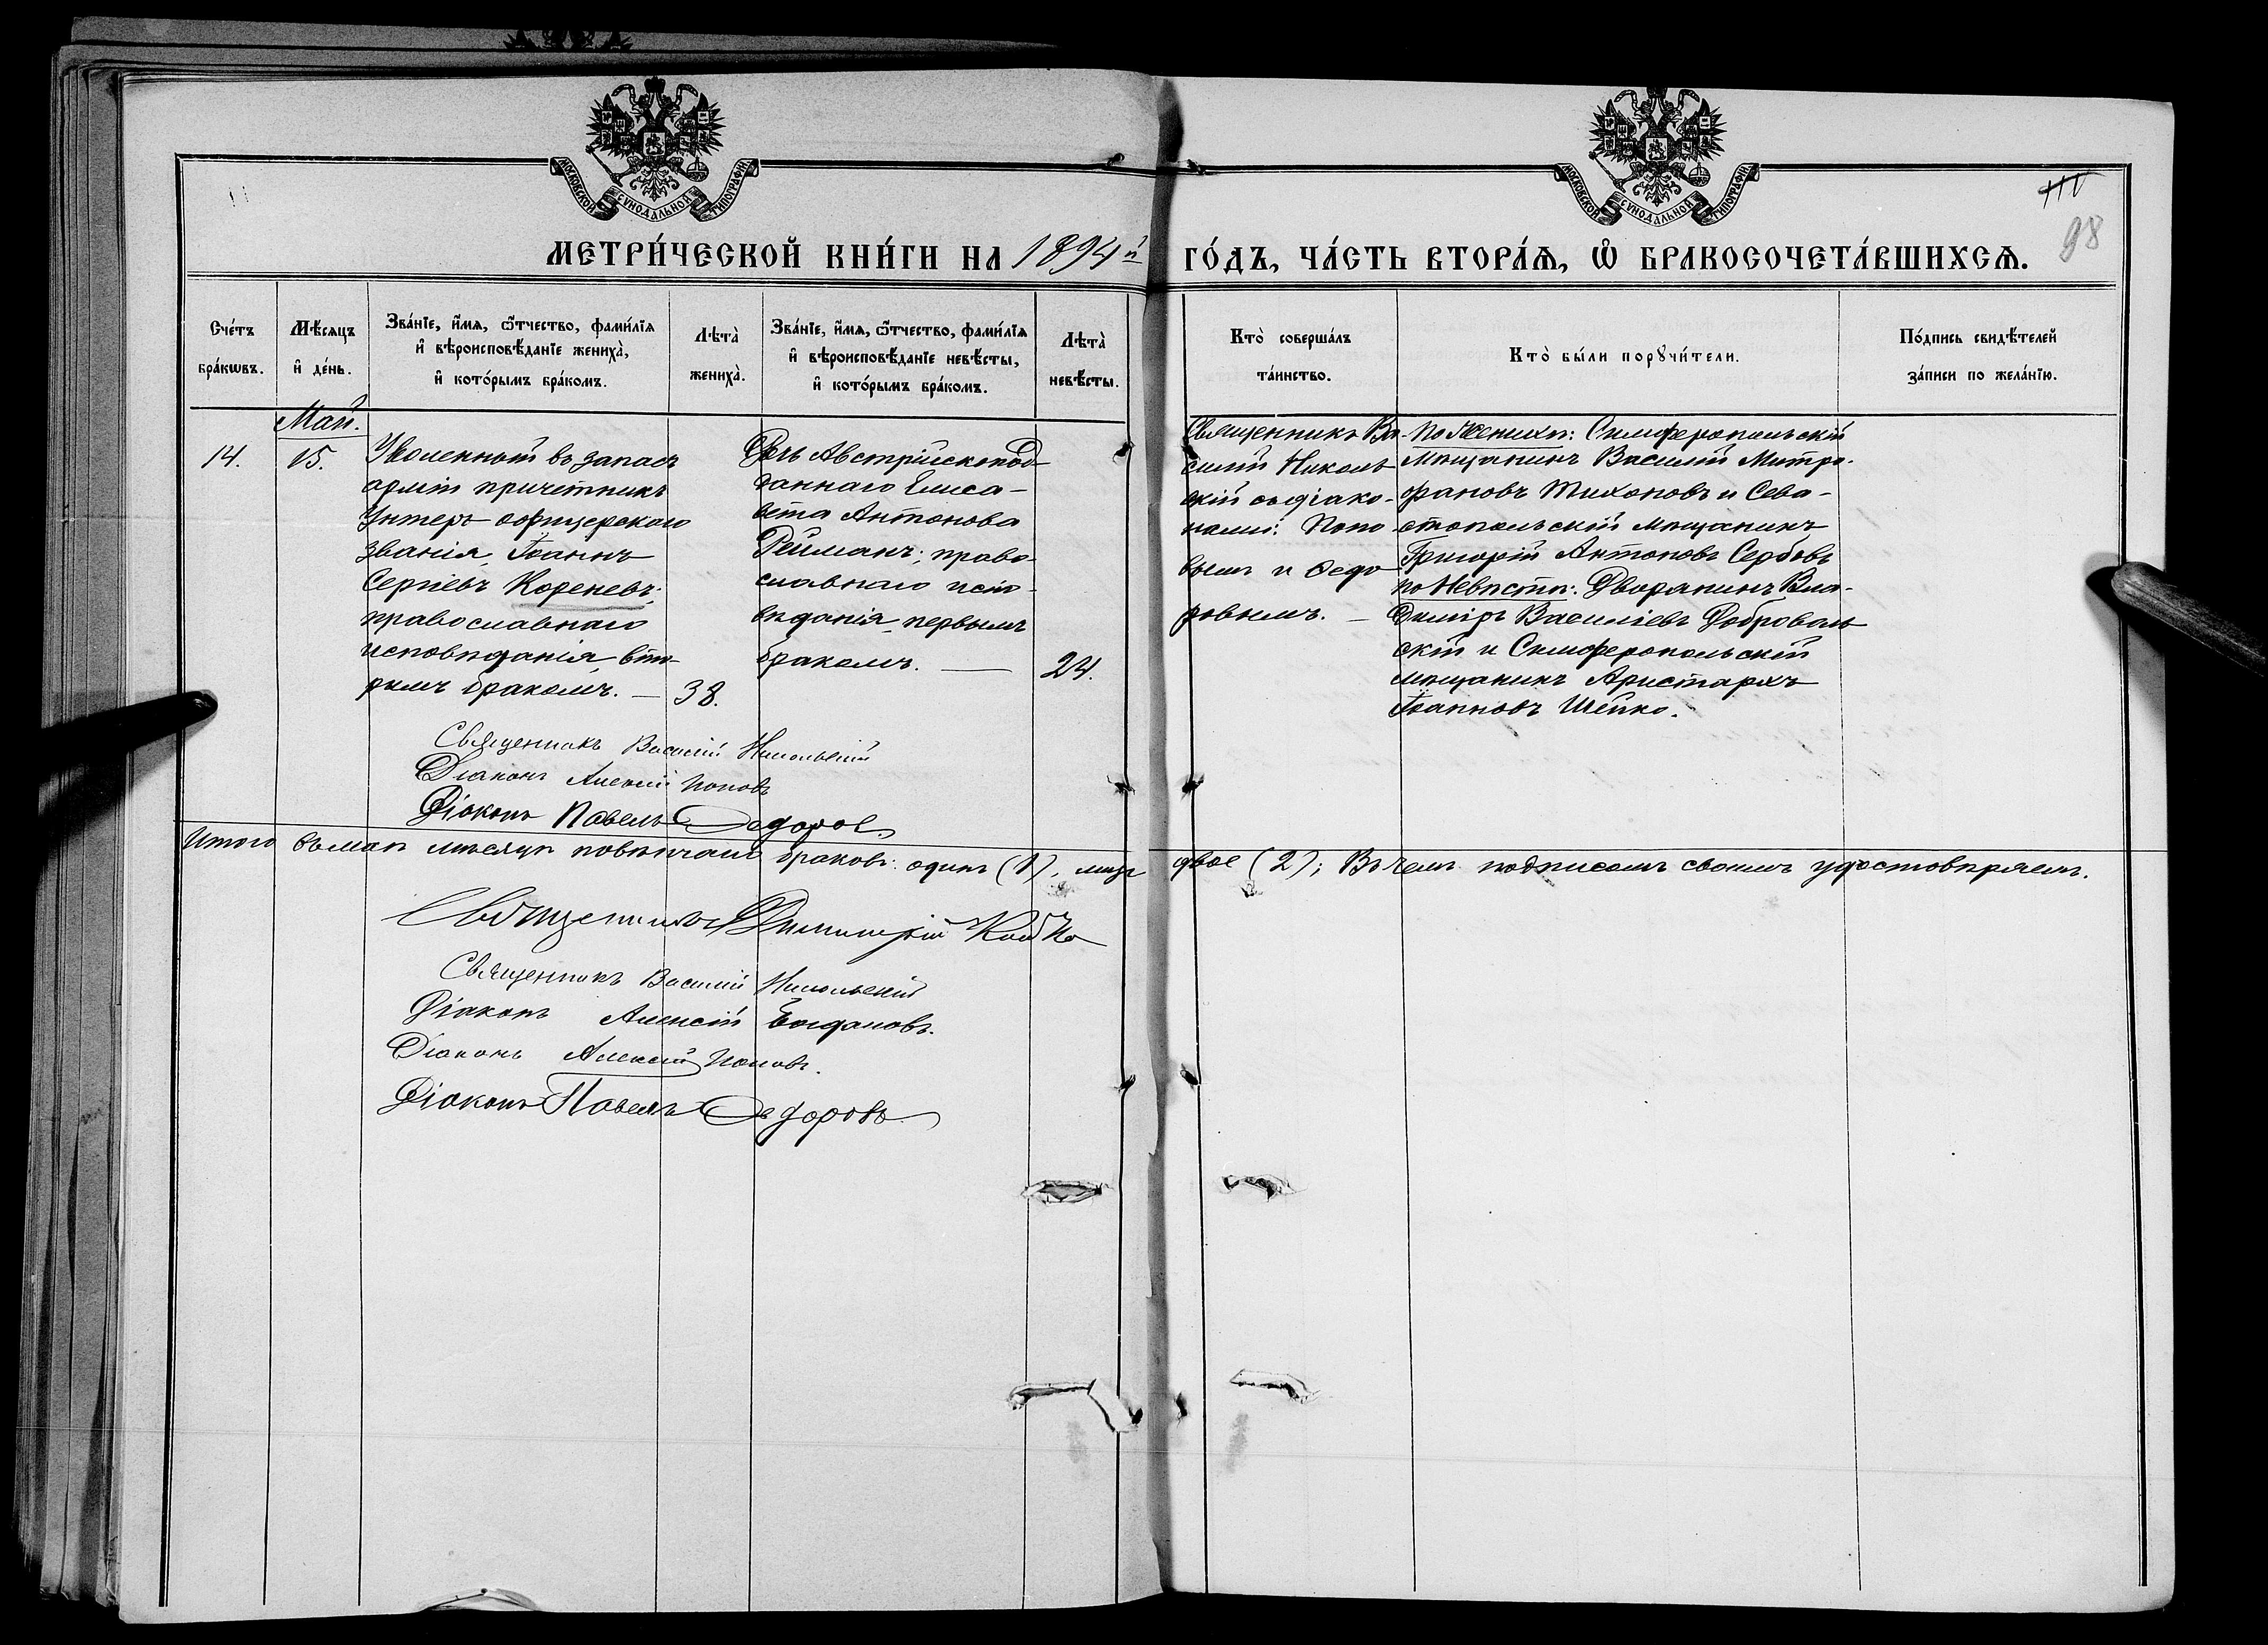 МОСКОВСКОЙ СѴНОДАЛЬНОЙ ТИПОГРАФІИ
МОСКОВСКОЙ СѴНОДАЛЬНОЙ ТИПОГРАФІИ
98
МЕТРИ́ЧЕСКОЙ КНИ́ГИ НА 1894й ГО́ДЪ, ЧА́СТЬ ВТОРА́Ѧ, Ѽ БРАКОСОЧЕТА́ВШИХСѦ.
Сче́тъ
бра́кѡвъ.
Мѣ́сяцъ
и҆ де́нь.
Зва́нїе, и҆́мя, ѻ҆́тчество, фами́лїя
и҆ вѣроисповѣ́данїе жениха̀,
и҆ кото́рымъ бра́комъ.
Лѣта̀
жениха̀.
Зва́нїе, и҆́мя, ѻ҆́тчество, фами́лїя
и҆ вѣроисповѣ́данїе невѣ́сты,
и҆ кото́рымъ бра́комъ.
Лѣта̀
невѣ́сты.
Кто̀ соверша́лъ
та́инство.
Кто̀ бы́ли порꙋчи́тели.
По́дпись свидѣ́телей
за́писи по жела́нїю.
Май.
14.
15.
Уволенный въ запасъ
арміи причетникъ
Унтеръ-офицерскаго
званія, Іоаннъ
Сергіевъ Кореневъ;
православнаго
исповѣданія, вто-
рымъ бракомъ. —
38.
Дочь Австрійскоподданнаго Елиса-
вета Антонова
Рейманъ; право-
славнаго испо-
вѣданія, первымъ
бракомъ. —
24.
Священникъ Ва-
силій Николь
скій съ діако-
нами: Попо
вымъ и Ѳедо
ровымъ. —
По Женихѣ: Симферопольскій
мѣщанинъ Василій Митро-
фановъ Тихоновъ и Сева-
стопольскій мѣщанинъ
Григорій Антоновъ Сербовъ
по Невѣстѣ: Дворянинъ Вла-
диміръ Василіевъ Доброволь
скій и Симферопольскій
мѣщанинъ Аристархъ
Іоанновъ Шейко.
Священникъ Василій Никольскій
Діаконъ Алексій Поповъ
Діаконъ Павелъ Ѳедоровъ
Итого въ маѣ мѣсяцѣ повѣнчано браковъ: одинъ (1), лицъ двое (2); Въ чемъ подписомъ своимъ удостовѣряемъ.
Священникъ Димитрій
Священникъ Василій Никольскій
Діаконъ Алексій Богдановъ.
Діаконъ Алексій Поповъ.
Діаконъ Павелъ Ѳедоровъ